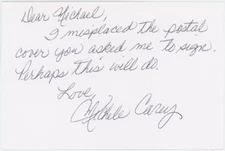 Dear Michael,
I misplaced the postal
cover you asked me to sign.
Perhaps this will do.
Love,
Michele Carey